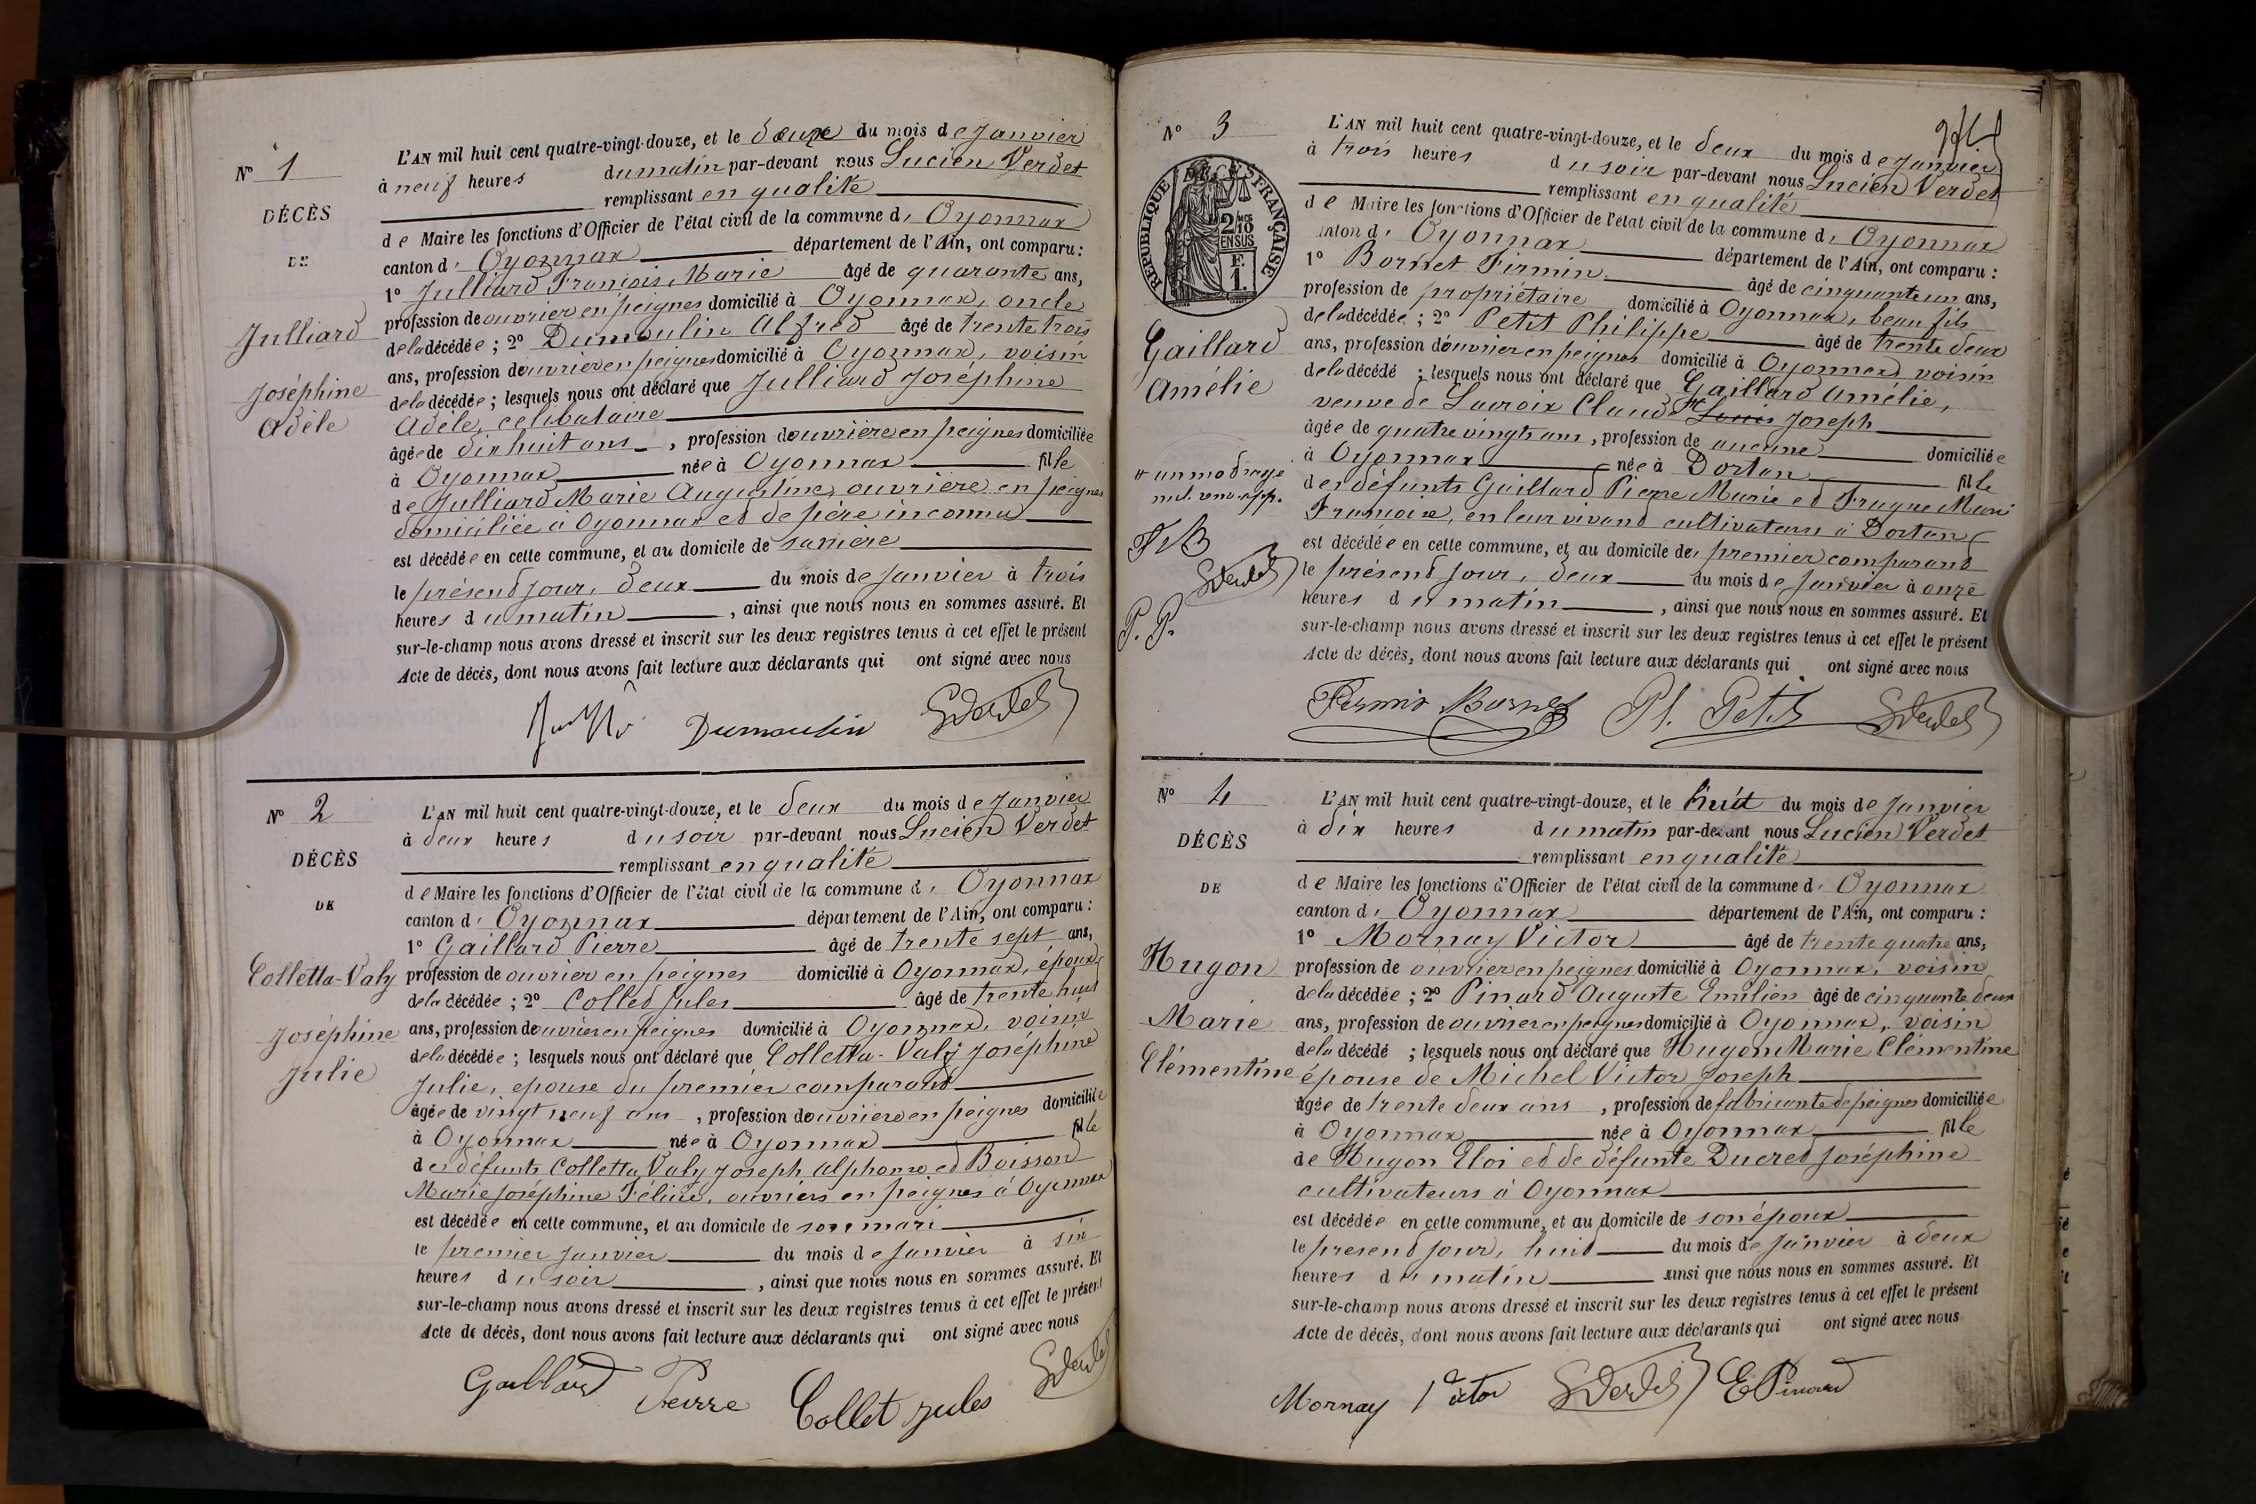 N° 1
DÉCÈS
DE
Julliard
Joséphine
Adèle
L'AN mil huit cent quatre-vingt-douze, et le deux du mois de Janvier
à neuf heures du matin par-devant nous Lucien Verdet
remplissant en qualité
de Maire les fonctions d'Officier de l'état civil de la commune d' Oyonnax
canton d' Oyonnax département de l'Ain, ont comparu :
1° Julliard François Marie âgé de quarante ans,
profession de ouvrier en peignes domicilié à Oyonnax, oncle
de la décédée ; 2° Dumoulin Alfred âgé de trente trois
ans, profession d'ouvrier en peignes domicilié à Oyonnax, voisin
de la décédée ; lesquels nous ont déclaré que Julliard Joséphine
Adèle, célibataire
âgée de dix huit ans, profession d'ouvrière en peignes domiciliée
à Oyonnax née à Oyonnax fille
de Julliard Marie Augustine, ouvrière en peignes
domiciliée à Oyonnax et de père inconnu
est décédée en cette commune, et au domicile de sa mère
le présent jour, deux du mois de Janvier à trois
heures du matin, ainsi que nous nous en sommes assuré. Et
sur-le-champ nous avons dressé et inscrit sur les deux registres tenus à cet effet le présent
Acte de décès, dont nous avons fait lecture aux déclarants qui ont signé avec nous
Dumoulin LVerdet
N° 2
DÉCÈS
DE
Colletta-Valy
Joséphine
Julie
L'AN mil huit cent quatre-vingt-douze, et le deux du mois de Janvier
à deux heures du soir par-devant nous Lucien Verdet
remplissant en qualité
de Maire les fonctions d'Officier de l'état civil de la commune d' Oyonnax
canton d' Oyonnax département de l'Ain, ont comparu :
1° Gaillard Pierre âgé de trente sept ans,
profession de ouvrier en peignes domicilié à Oyonnax, époux
de la décédée ; 2° Collet Jules âgé de trente huit
ans, profession d'ouvrier en peignes domicilié à Oyonnax, voisin
de la décédée ; lesquels nous ont déclaré que Colletta-Valy Joséphine
Julie, épouse du premier comparant
âgée de vingt neuf ans, profession d'ouvrière en peignes domiciliée
à Oyonnax née à Oyonnax fille
des défunts Colletta Valy Joseph Alphonse et Boisson
Marie Joséphine Félicie, ouvriers en peignes à Oyonnax
est décédée en cette commune, et au domicile de son mari
le premier Janvier du mois de Janvier à six
heures du soir, ainsi que nous nous en sommes assuré. Et
sur-le-champ nous avons dressé et inscrit sur les deux registres tenus à cet effet le présent
Acte de décès, dont nous avons fait lecture aux déclarants qui ont signé avec nous
Gaillard Pierre Collet Jules LVerdet
N° 3
REPUBLIQUE FRANÇAISE
2/10 EN SUS
F. 1.
Gaillard
Amélie
un mot rayé
nul. app.
F B
LVerdet
P. P.
L'AN mil huit cent quatre-vingt-douze, et le deux du mois de Janvier
à trois heures du soir par-devant nous Lucien Verdet
remplissant en qualité
de Maire les fonctions d'Officier de l'état civil de la commune d' Oyonnax
canton d' Oyonnax département de l'Ain, ont comparu :
1° Bornet Firmin âgé de cinquante un ans,
profession de propriétaire domicilié à Oyonnax, beau fils
de la décédée ; 2° Petit Philippe âgé de trente deux
ans, profession d'ouvrier en peignes domicilié à Oyonnax voisin
de la décédé ; lesquels nous ont déclaré que Gaillard Amélie,
veuve de Lacroix Claude Louis Joseph
âgée de quatre vingts ans, profession de aucune domiciliée
à Oyonnax née à Dortan fille
des défunts Gaillard Pierre Marie et Fragne Marie
Françoise, en leur vivant cultivateurs à Dortan
est décédée en cette commune, et au domicile du premier comparant
le présent jour, deux du mois de Janvier à onze
heures du matin, ainsi que nous nous en sommes assuré. Et
sur-le-champ nous avons dressé et inscrit sur les deux registres tenus à cet effet le présent
Acte de décès, dont nous avons fait lecture aux déclarants qui ont signé avec nous
Firmin Bornet Ph. Petit LVerdet
N° 4
DÉCÈS
DE
Hugon
Marie
Clémentine
L'AN mil huit cent quatre-vingt-douze, et le huit du mois de Janvier
à dix heures du matin par-devant nous Lucien Verdet
remplissant en qualité
de Maire les fonctions d'Officier de l'état civil de la commune d' Oyonnax
canton d' Oyonnax département de l'Ain, ont comparu :
1° Mornay Victor âgé de trente quatre ans,
profession de ouvrier en peignes domicilié à Oyonnax, voisin
de la décédée ; 2° Pinard Auguste Emilien âgé de cinquante deux
ans, profession de ouvrier en peignes domicilié à Oyonnax, voisin
de la décédé ; lesquels nous ont déclaré que Hugon Marie Clémentine
épouse de Michel Victor Joseph
âgée de trente deux ans, profession de fabricante de peignes domiciliée
à Oyonnax née à Oyonnax fille
de Hugon Eloi et de défunte Ducret Joséphine
cultivateurs à Oyonnax
est décédée en cette commune, et au domicile de son époux
le présent jour, huit du mois de Janvier à deux
heures du matin ainsi que nous nous en sommes assuré. Et
sur-le-champ nous avons dressé et inscrit sur les deux registres tenus à cet effet le présent
Acte de décès, dont nous avons fait lecture aux déclarants qui ont signé avec nous
Mornay Victor LVerdet E Pinard